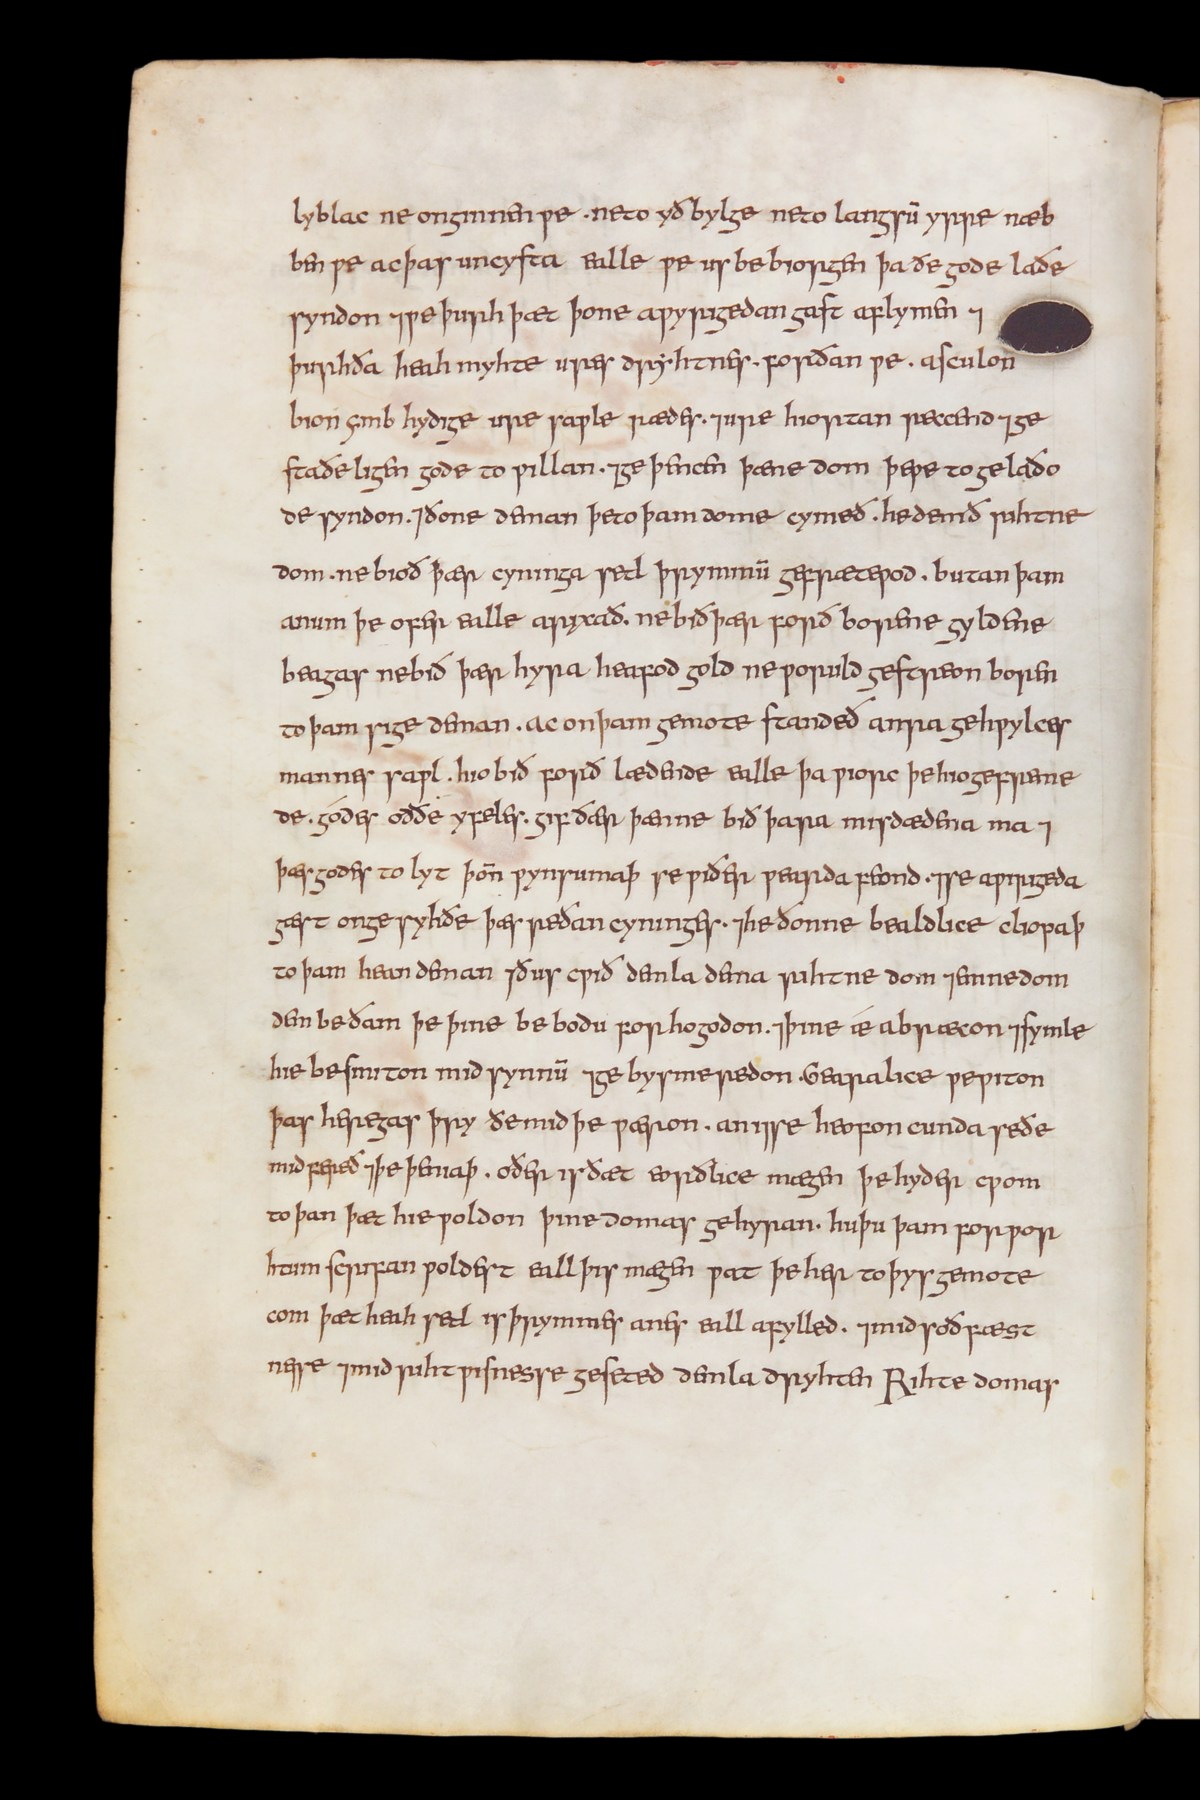 lyblac ne onginnen ƿe · ne to yðbylge ne to langsū yrre næb
ben ƿe ac þas uncysta ealle ƿe us bebiorgen þa ðe gode laðe
syndon ⁊ ƿe þurh þæt þone aƿyrgedan gast aflymen ⁊
þurh ða heah myhte ures dryhtnes · forðan ƿe · a sculon
bion ymb hydige ure saƿle rædes · ⁊ ure hiortan reccend ⁊ ge
staðeligen gode to ƿillan · ⁊ geþencen þæne dom þe ƿe to gelaðo
de syndon · ⁊ ðone deman þe to þam dome cymeð · he demð rihtne
dom · ne bioð þær cyninga setl þrymmū gefræteƿod · butan þam
anum þe ofer ealle arixað · ne bið þær forð borene gyldene
beagas ne bið þær hyra heafod gold ne ƿoruld gestreon boren
to þam sige deman · ac on þam gemote standeð anra gehƿylces
mannes saƿl · hio bið forð lædende ealle þa ƿiorc þe hio gefreme
de · gódes oððe yfeles · gif ðær þænne bið þara misdædena ma ⁊
þæs godes to lyt þoñ ƿynsumaþ se ƿiðerƿearda feond · ⁊ se aƿirigeda
gæst on gesyhðe þæs reðan cyninges · ⁊ he ðonne bealdlice cliopaþ
to þam hean deman ⁊ ðus cƿið dem la dema rihtne dom ⁊ emne dom
dem be ðam þe þine bebodu forhogodon · ⁊ þine ǽ abræcon ⁊ symle
hie besmiton mid synnū ⁊ gebysmeredon · Gearalice ƿe ƿiton
þas heregas þry ðe mid þe ƿæron · an is se heofoncunda se ðe
mid fereð ⁊ þe þenaþ · oðer is ðæt eorðlice mægen þe hyder cƿom
to þan þæt hie ƿoldon þine domas gehyran · hu þu þam forƿor
htum scrifan ƿoldest eall þis mægen ƿat þe her to þys gemote
com þæt heah setl is þrymmes anes eall afylled · ⁊ mid soðfæst
nesse ⁊ mid rihtƿisnesse geseted dem la dryhten Rihte domas